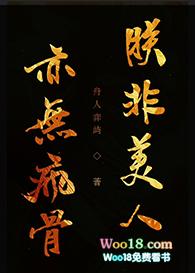 朕非美人
舟人弈屿 ◇ 著
亦無病骨
Woo18.com
Woo18免费看书